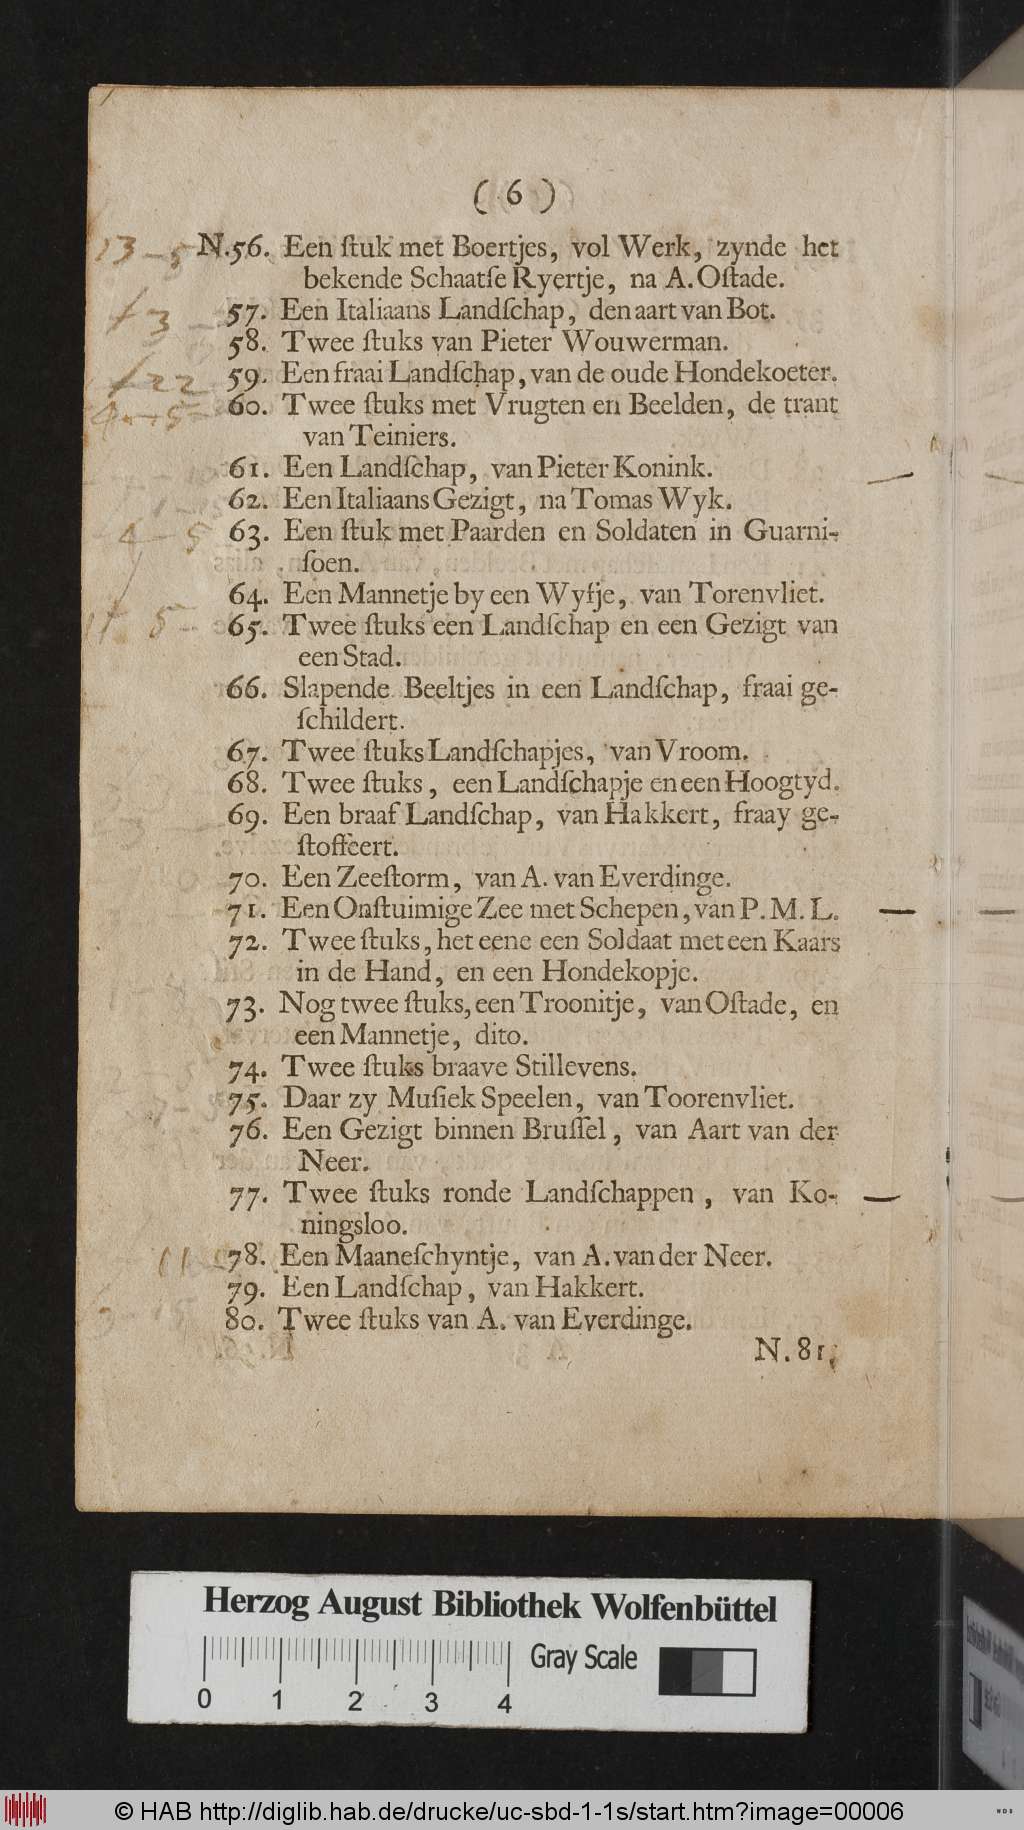 ( 6 )
13 - 5 N.56. Een ſtuk met Boertjes, vol Werk, zynde het
bekende Schaatſe Ryertje, na A. Oſtade.
13 57. Een Italiaans Landſchap, den aart van Bot.
58. Twee ſtuks van Pieter Wouwerman.
22 59. Een fraai Landſchap, van de oude Hondekoeter.
4 - 5 60. Twee ſtuks met Vrugten en Beelden, de trant
van Teiniers.
61. Een Landſchap, van Pieter Konink.
62. Een Italiaans Gezigt, na Tomas Wyk.
4 - 5 63. Een ſtuk met Paarden en Soldaten in Guarni-
ſoen.
64. Een Mannetje by een Wyfje, van Torenvliet.
11 - 5 65. Twee ſtuks een Landſchap en een Gezigt van
een Stad.
66. Slapende Beeltjes in een Landſchap, fraai ge-
ſchildert.
67. Twee ſtuks Landſchapjes, van Vroom.
68. Twee ſtuks, een Landſchapje en een Hoogtyd.
69. Een braaf Landſchap, van Hakkert, fraay ge-
ſtoffeert.
70. Een Zeeſtorm, van A. van Everdinge.
71. Een Onſtuimige Zee met Schepen, van P. M. L.
72. Twee ſtuks, het eene een Soldaat met een Kaars
in de Hand, en een Hondekopje.
73. Nog twee ſtuks, een Troonitje, van Oſtade, en
een Mannetje, dito.
74. Twee ſtuks braave Stillevens.
75. Daar zy Muſiek Speelen, van Toorenvliet.
76. Een Gezigt binnen Bruſſel, van Aart van der
Neer.
77. Twee ſtuks ronde Landſchappen, van Ko-
ningsloo.
11 78. Een Maaneſchyntje, van A. van der Neer.
79. Een Landſchap, van Hakkert.
80. Twee ſtuks van A. van Everdinge.
N. 81.
Herzog August Bibliothek Wolfenbüttel
Gray Scale
0 1 2 3 4
© HAB http://diglib.hab.de/drucke/uc-sbd-1-1s/start.htm?image=00006